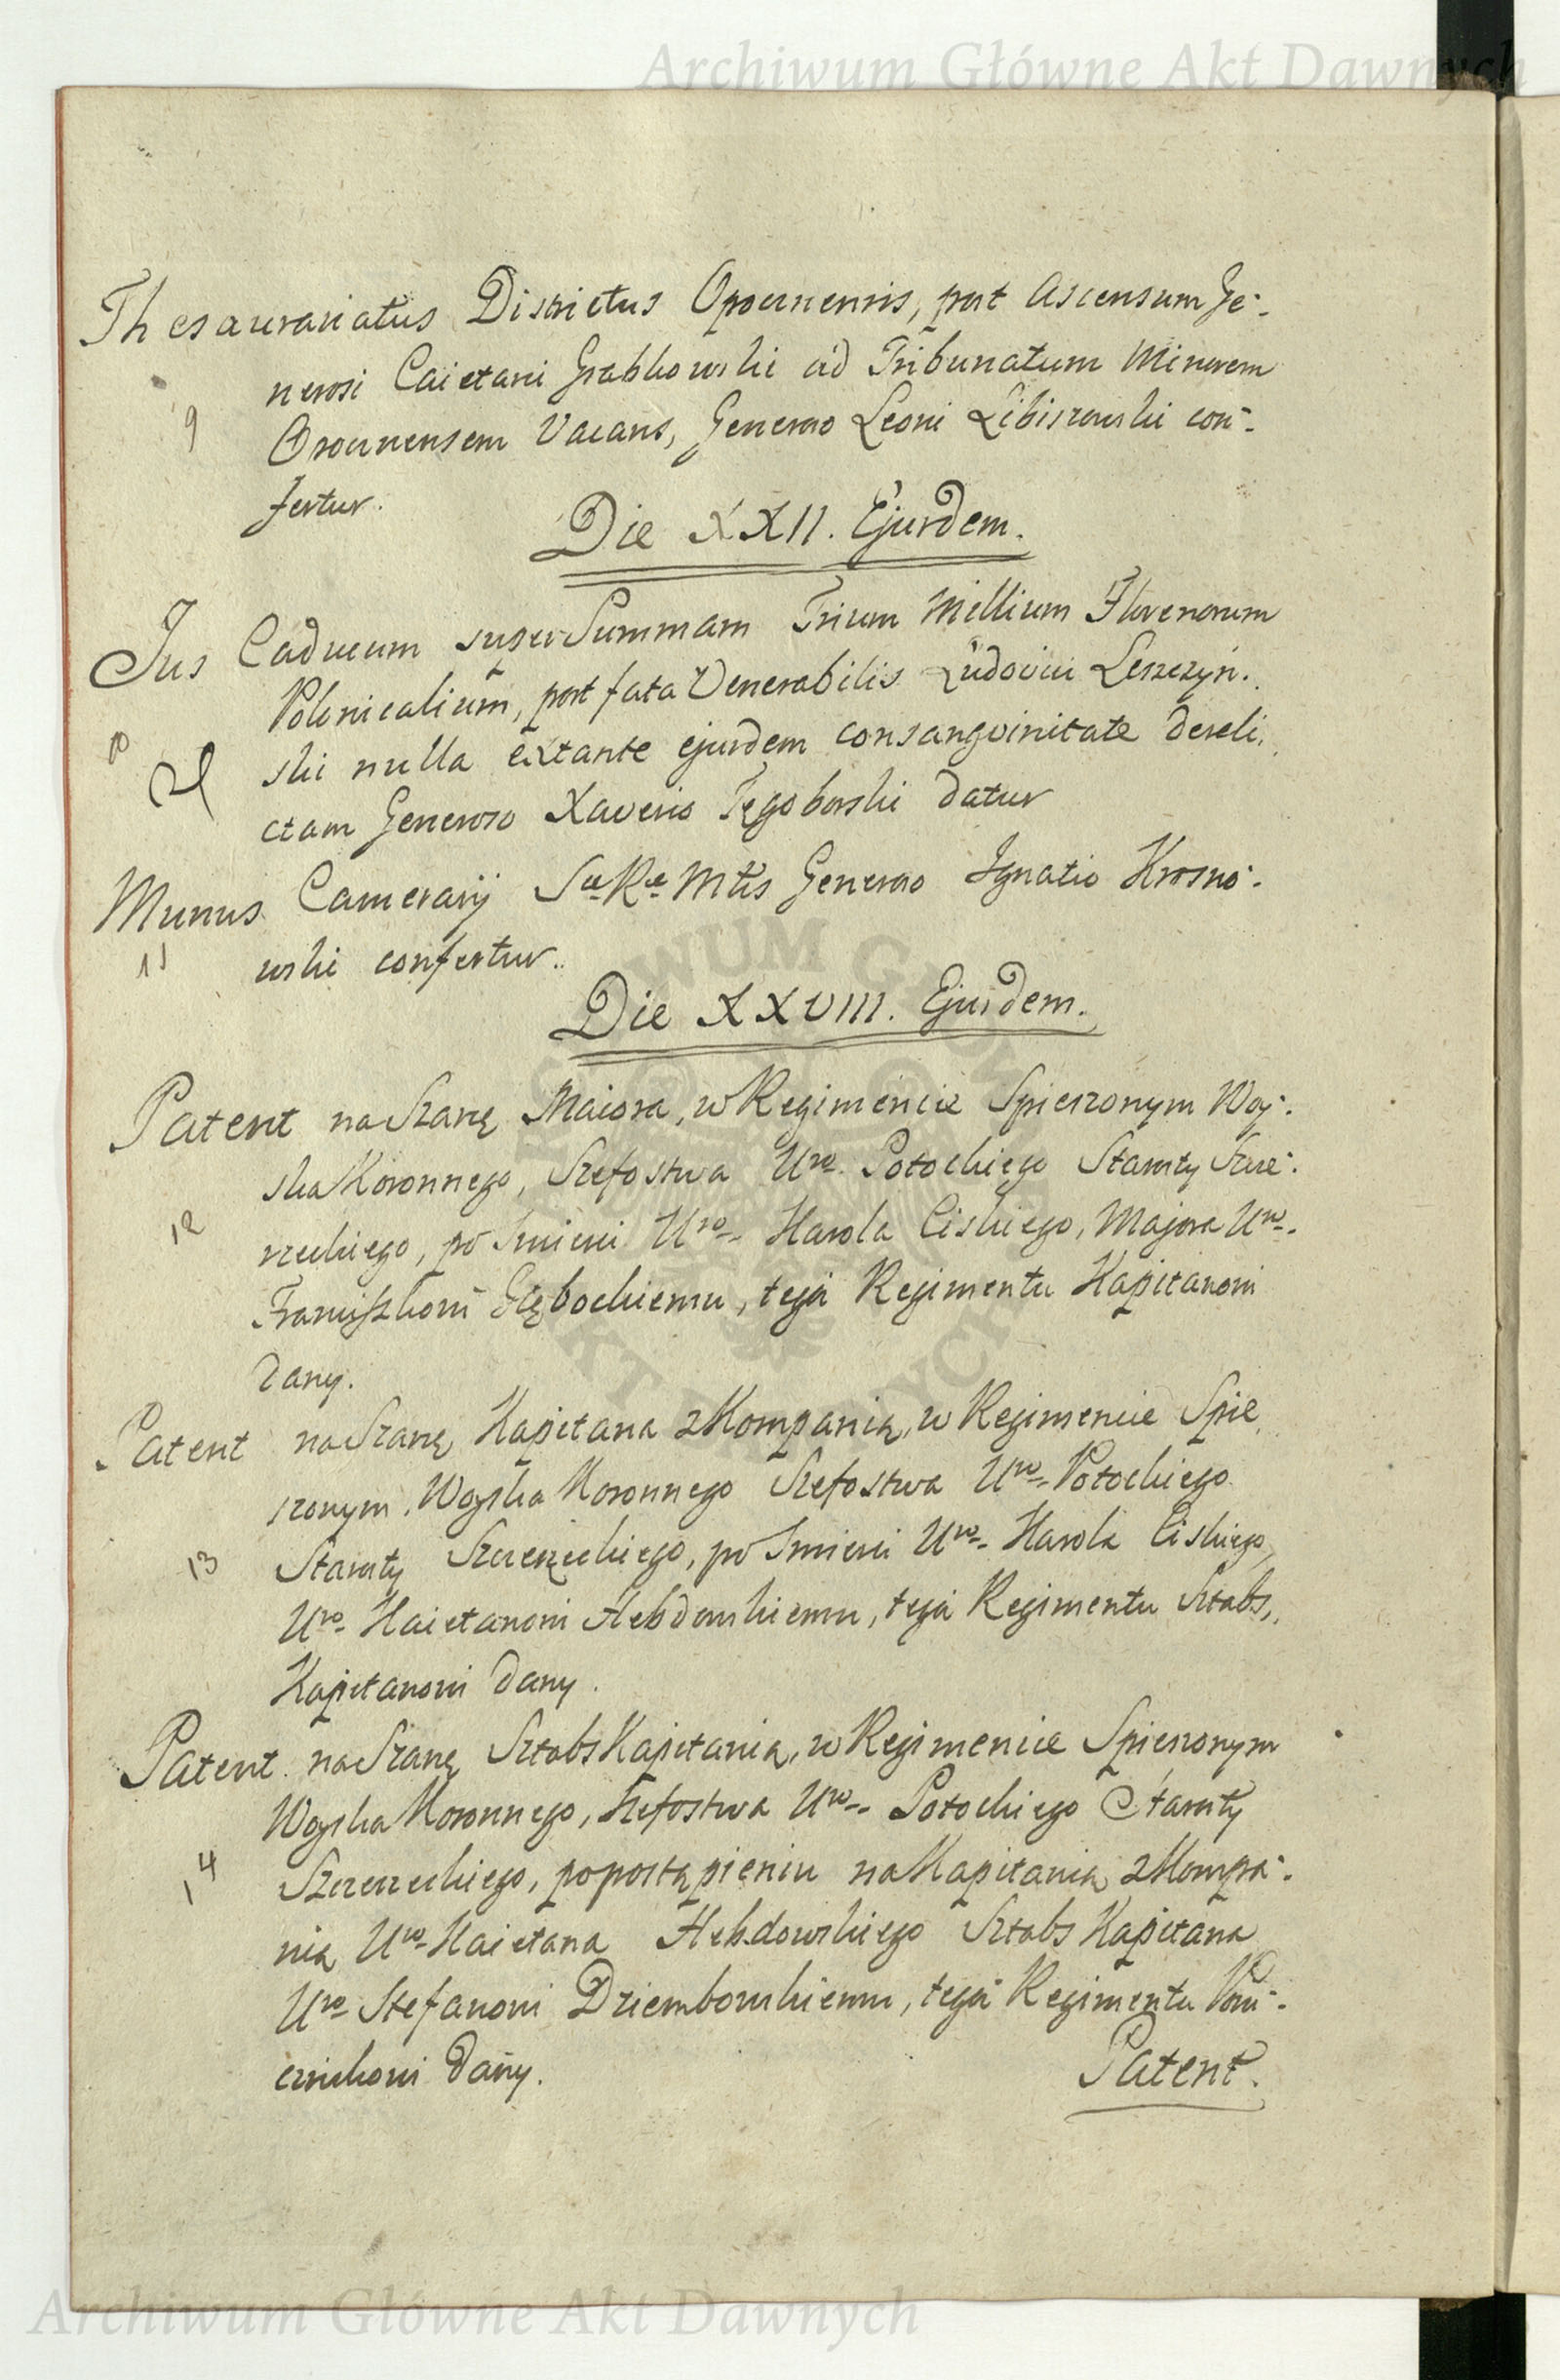 Archiwum Główne Akt Dawnych
Thesaurariatus Districtus Opocznensis, post Ascensum Ge-
nerosi Caietani Grabkowski ad Tribunatum Minorem
9
Opocznensem Vacans, Generoso Leoni Libiszowski con-
fertur.
Die XXII. Ejusdem.
Jus Caducum super Summam Trium Millium Florenorum
Polonicalium, post fata Venerabilis Ludovici Leszczyń-
10
ski nulla extante ejusdem consanguinitate dereli-
ctam Generoso Xaverio Tęgoborski datur
Munus Camerarij Sae Rae Mtis Generoso Ignatio Krosno-
11
wski confertur.
Die XXVIII. Ejusdem.
Patent na Szarżę Maiora, w Regimencie Spieszonym Woj-
ska Koronnego, Szefostwa Uro Potockiego Starosty Szcze-
12
rzeckiego, po Smierci Uro Karola Ciskiego, Majora Uro
Franciszkowi Głębockiemu, tegoż Regimentu Kapitanowi
dany.
Patent na Szarżę Kapitana z Kompanią, w Regimencie Spie
szonym Woyska Koronnego Szefostwa Uro Potockiego
13
Starosty Szczerzeckiego, po Smierci Uro Karola Ciskiego,
Uro Kaietanowi Hebdowskiemu, tegoż Regimentu Sztabs,
Kapitanowi dany.
Patent na Szarżę SztabsKapitanią, w Regimencie Spieszonym
Woyska Koronnego, Szefostwa Uro Potockiego Starosty
14
Szczerzeckiego, po postąpieniu na Kapitanią z Kompa-
nią Uro Kaietana Hebdowskiego Sztabs Kapitana
Uro Stefanowi Dziembowskiemu, tegoż Regimentu Poru-
cznikowi dany.
Patent.
Archiwum Główne Akt Dawnych